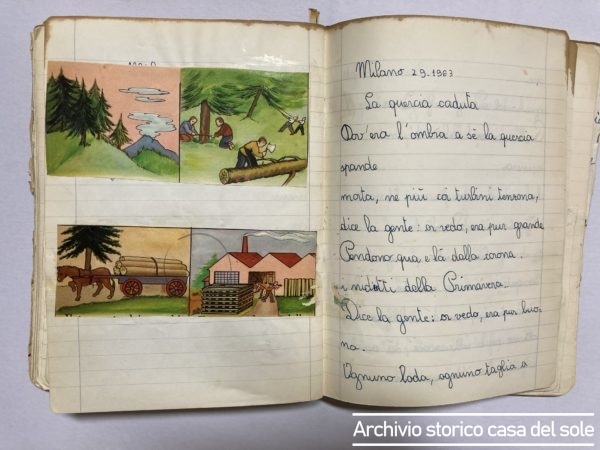 Milano 29-1963
La quercia caduta
Dov'era l'ombra a sè la quercia
spande
morta, ne più coi turbini tenzona,
dice la gente: or vedo, era pur grande
Pendono qua e là dalla corona.
i nidietti della Primavera.
Dice la gente: or vedo, era pur buo-
na.
Ognuno loda, ognuno taglia a
Archivio storico casa del sole